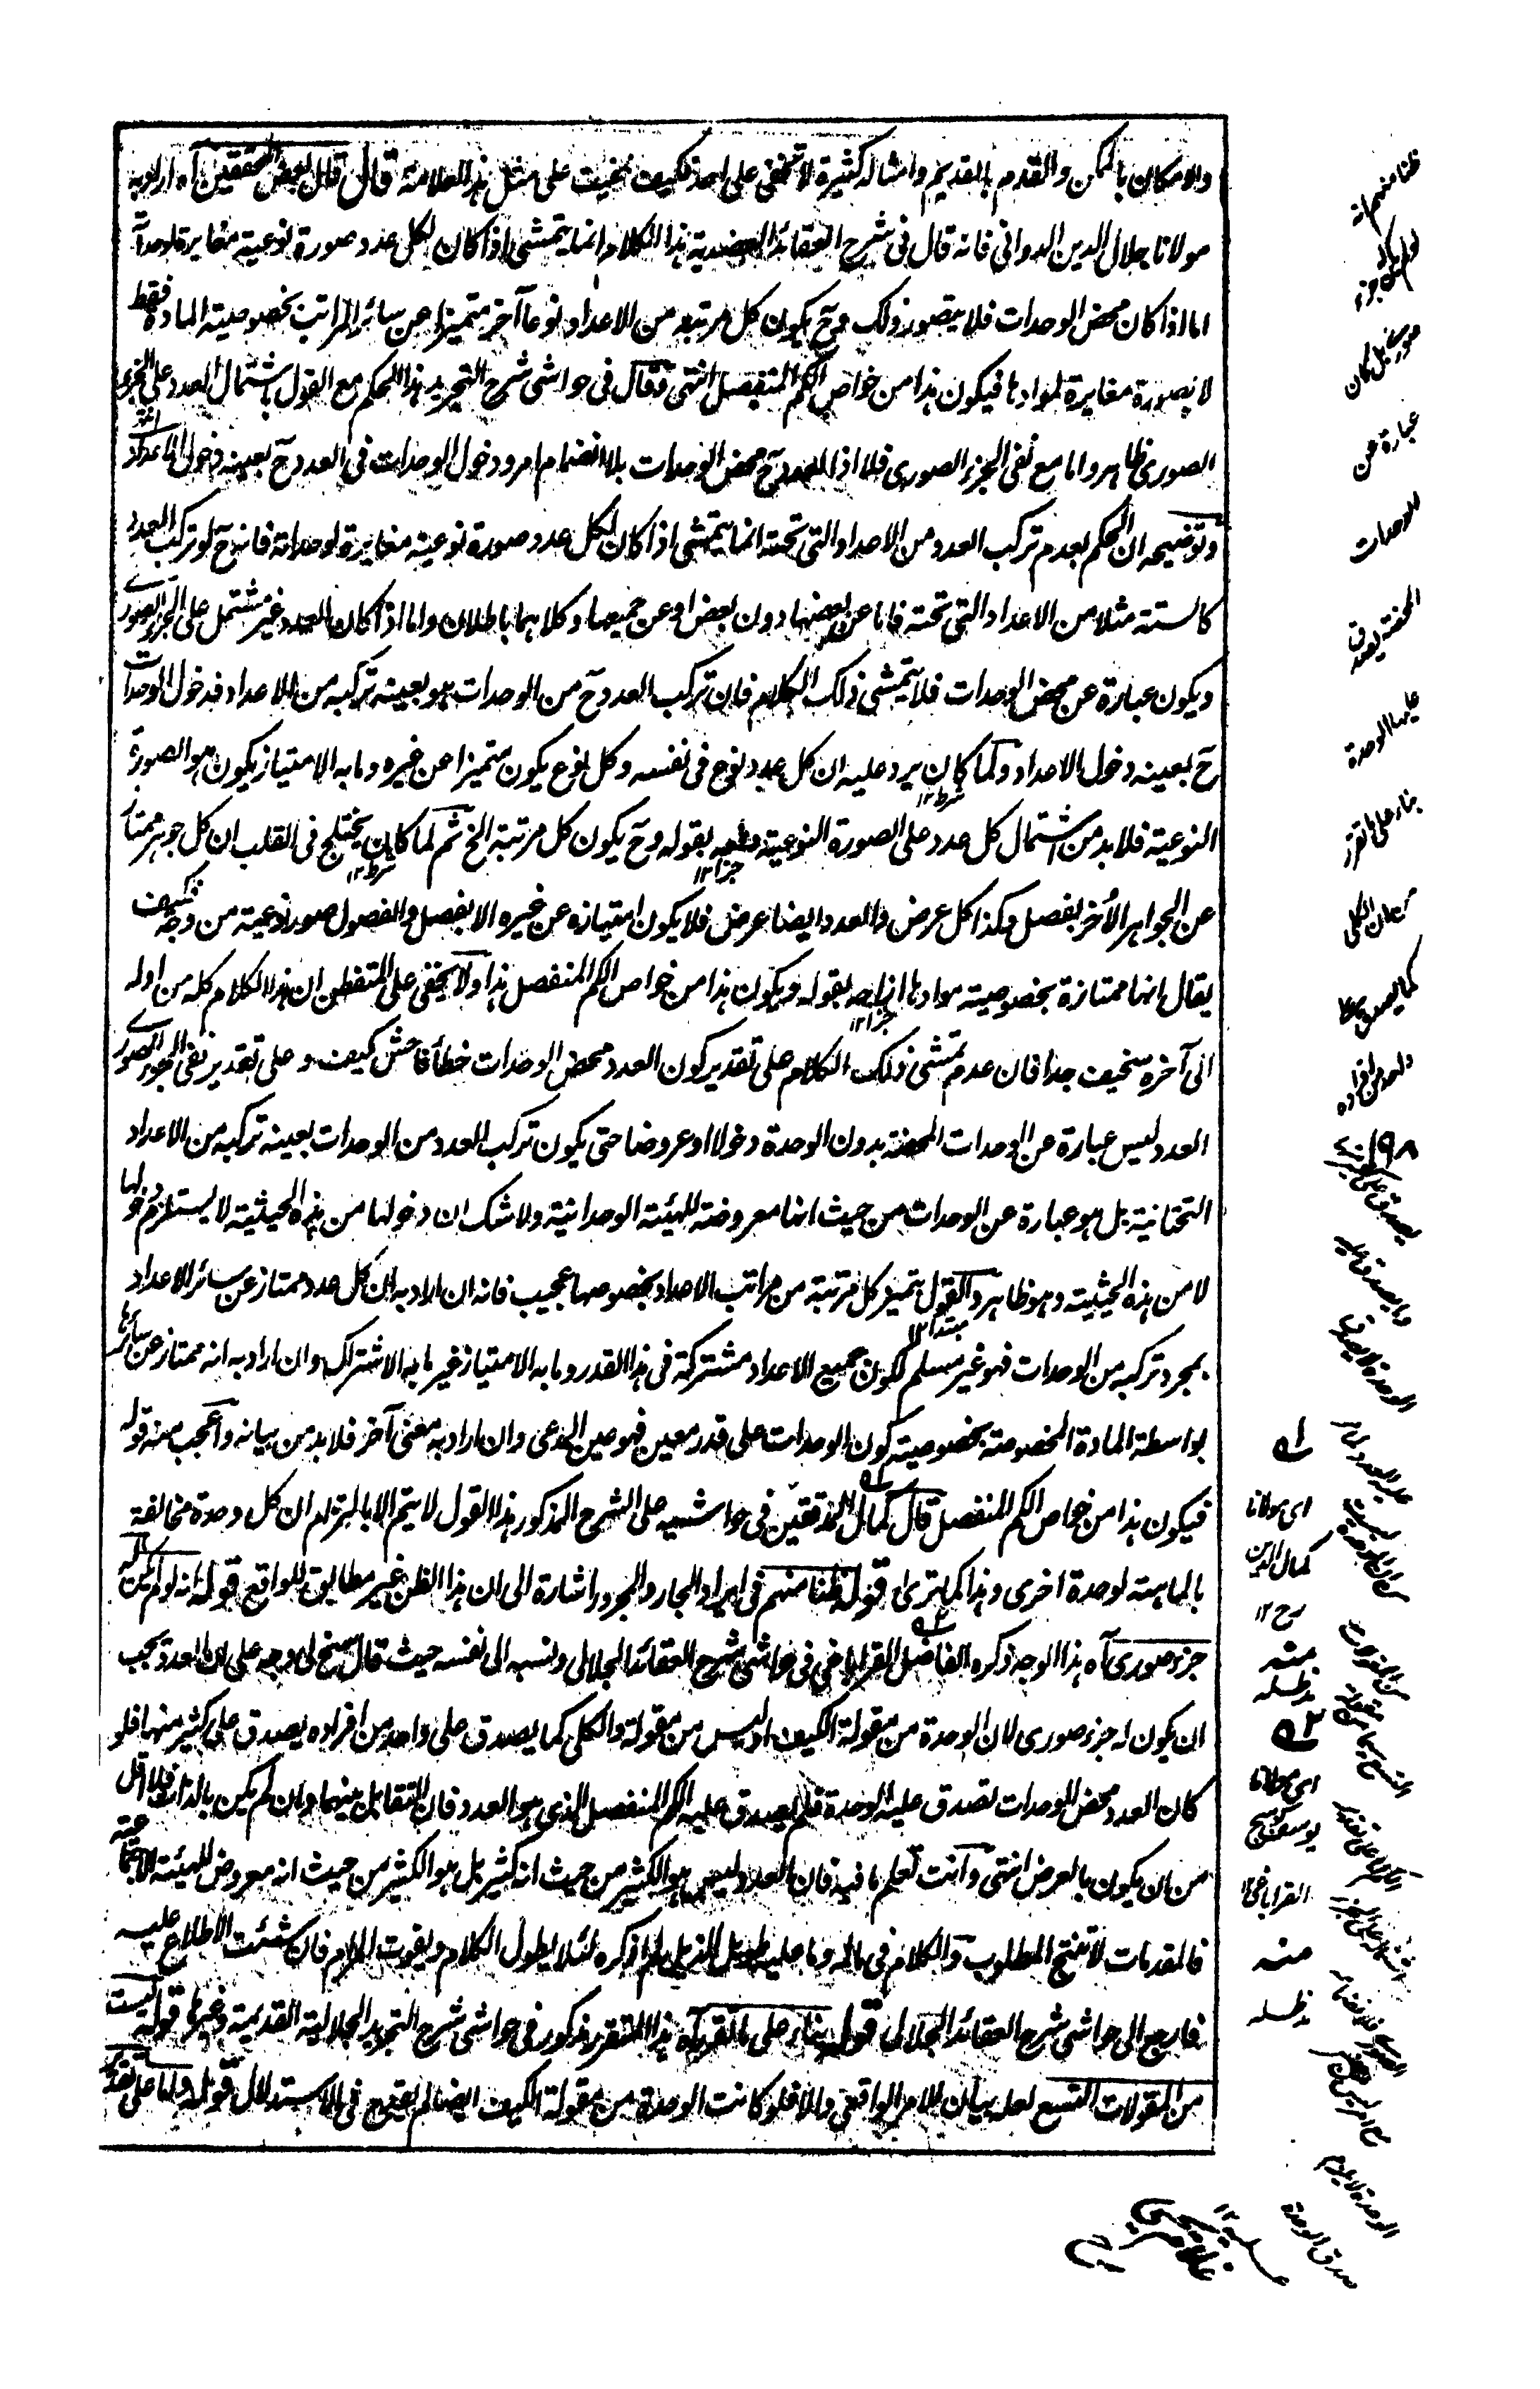 والامكان بالممكن والقدم بالقديم وامثاله كثيرة لا تخفى على احد فكيف خفيت على مثل هذا العلامة قال قال بعض المحققين آه اراد به
مولانا جلال الدين الدوانى فانه قال فى شرح العقائد العضدية هذا الكلام انما يتمشى اذا كان لكل عدد صورة نوعية مغايرة لوحداته
اما اذا كان محض الوحدات فلا يتصور ذلك وح يكون كل مرتبة من الاعداد نوعا آخر متميزا عن سائر المراتب بخصوصية المادة فقط
لا بصورة مغايرة لموادها فيكون هذا من خواص الكم المنفصل انتهى وقال فى حواشى شرح التجريد هذا الحكم مع القول باشتمال العدد على الجزء
الصورى ظاهر واما مع نفى الجزء الصورى فلا اذ العدد ح محض الوحدات بلا انضمام امر ودخول الوحدات فى العدد ح بعينه دخول الاعداد انتهى
وتوضيحه ان الحكم بعدم تركب العدد من الاعداد التى تحته انما يتمشى اذا كان لكل عدد صورة نوعية مغايرة لوحداته فانه ح لو تركب العدد
كالستة مثلا من الاعداد التى تحته فاما عن بعضها دون بعض او عن جميعها وكلاهما باطلان واما اذا كان العدد غير مشتمل على الجزء الصورى
ويكون عبارة عن محض الوحدات فلا يتمشى ذلك الكلام فان تركب العدد ح من الوحدات هو بعينه تركبه من الاعداد فدخول الوحدات
ح بعينه دخول الاعداد ولما كان يرد عليه ان كل عدد نوع فى نفسه وكل نوع يكون متميزا عن غيره وما به الامتياز يكون هو الصورة
شرط ١٢
النوعية فلا بد من اشتمال كل عدد على الصورة النوعية دفعه بقوله وح يكون كل مرتبة الخ ثم لما كان يختلج فى القلب ان كل جوهر ممتاز
جزا ١٢ شرط ١٢
عن الجواهر الأخر بفصل وكذا كل عرض والعدد ايضا عرض فلا يكون امتيازه عن غيره الا بفصل والفصول صور نوعية من وجه فكيف
يقال انها ممتازة بخصوصية موادها ازاحه بقوله ويكون هذا من خواص الكم المنفصل هذا ولا يخفى على المتفطن ان هذا الكلام كله من اوله
جزا ١٢
الى آخره سخيف جدا فان عدم تمشى ذلك الكلام على تقدير كون العدد محض الوحدات خطأ فاحش كيف وعلى تقدير نفى الجزء الصورى
العدد ليس عبارة عن الوحدات المحضة بدون الوحدة دخولا او عروضا حتى يكون تركب العدد من الوحدات بعينه تركبه من الاعداد
التحتانية بل هو عبارة عن الوحدات من حيث انها معروضة للهيئة الوحدانية ولا شك ان دخولها من هذه الحيثية لا يستلزم دخولها
لا من هذه الحيثية وهو ظاهر والقول بتميز كل مرتبة من مراتب الاعداد بخصوصها عجيب فانه ان اراد به ان كل عدد ممتاز عن سائر الاعداد
مبتدا ١٢
بمجرد تركبه من الوحدات فهو غير مسلم لكون جميع الاعداد مشتركة فى هذا القدر وما به الامتياز غير ما به الاشتراك وان اراد به انه ممتاز عن سائرها
بواسطة المادة المخصوصة بخصوصية كون الوحدات على قدر معين فهو عين المدعى وان اراد به معنى آخر فلا بد من بيانه واعجب منه قوله
فيكون هذا من خواص الكم المنفصل قال كمال المدققين فى حواشيه على الشرح المذكور هذا القول لا يتم الا بالتزام ان كل وحدة مخالفة
بالماهية لوحدة اخرى وهذا كما ترى اه قوله ظنا منهم فى ايراد الجار والمجرور اشارة الى ان هذا الظن غير مطابق للواقع قوله انه لو لم يكن له
جزء صورى آه هذا الوجه ذكره الفاضل القراباغى فى حواشى شرح العقائد الجلالى ونسبه الى نفسه حيث قال سنح لى وجه على ان العدد يجب
ان يكون له جزء صورى لان الوحدة من مقولة الكيف او ليس من مقولة والكلى كما يصدق على واحد من افراده يصدق على كثير منها فلو
كان العدد محض الوحدات لصدق عليه الوحدة فلم يصدق عليه الكم المنفصل الذى هو العدد فان التقابل بينهما وان لم يكن بالذات فلا اقل
من ان يكون بالعرض انتهى وانت تعلم ما فيه فان العدد ليس هو الكثير من حيث انه كثير بل هو الكثير من حيث انه معروض للهيئة الاجتماعية
فالمقدمات لا تنتج المطلوب والكلام فى ماله وما عليه طويل الذيل لم اذكره لئلا يطول الكلام ويفوت المرام فان شئت الاطلاع عليه
فارجع الى حواشى شرح العقائد الجلالى قوله بناء على ما تقرر آه هذا التقرر مذكور فى حواشى شرح التجريد الجلالية القديمة وغيرها قوله ليست
من المقولات التسع لعله بيان للامر الواقعى والا فلو كانت الوحدة من مقولة الكيف ايضا لم يقدح فى الاستدلال قوله واما على تقدير
ظنا منهم انه
لو لم يكن له جزء
صورى بل كان
عبارة عن
الوحدات
المحضة يصدق
عليها الوحدة
بناء على ما تقرر
من ان الكلى
كما يصدق على
واحد من افراده
يصدق على كثير
الوحدة
لـه
اى مولانا
كمال الدين
رح ١٢
منه
مدظله
٢ـه
اى مولانا
يوسف كوسج
القراباغى ١٢
منه
مدظله
صدق الوحدة